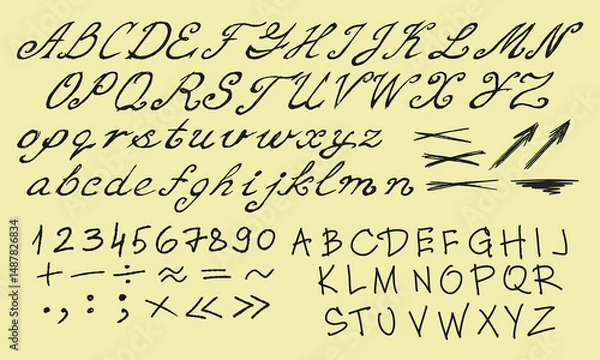 ABCDEFGHIJKLMN
OPQRSTUVWXYZ
opqrstuvwxyz
abcdefghijklmn
1234567890
+ — ÷ ≈ = ~
. , : ; × « »
ABCDEFGHIJ
KLMNOPQR
STUVWXYZ
Adobe Stock | #1487826834